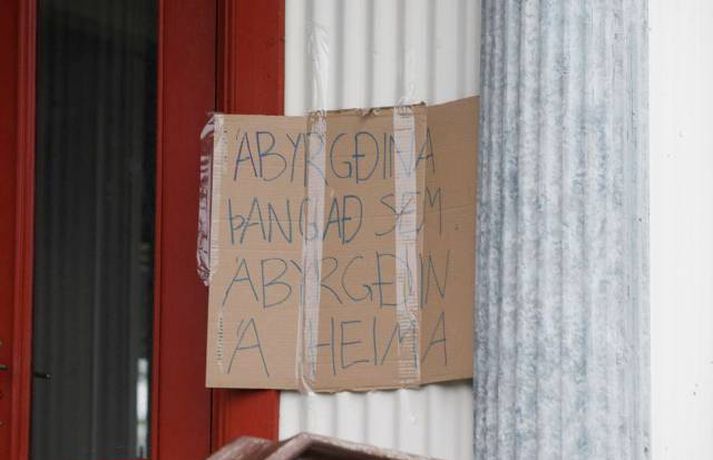 ÁBYRGÐINA
ÞANGAÐ SEM
ÁBYRGÐIN
Á HEIMA